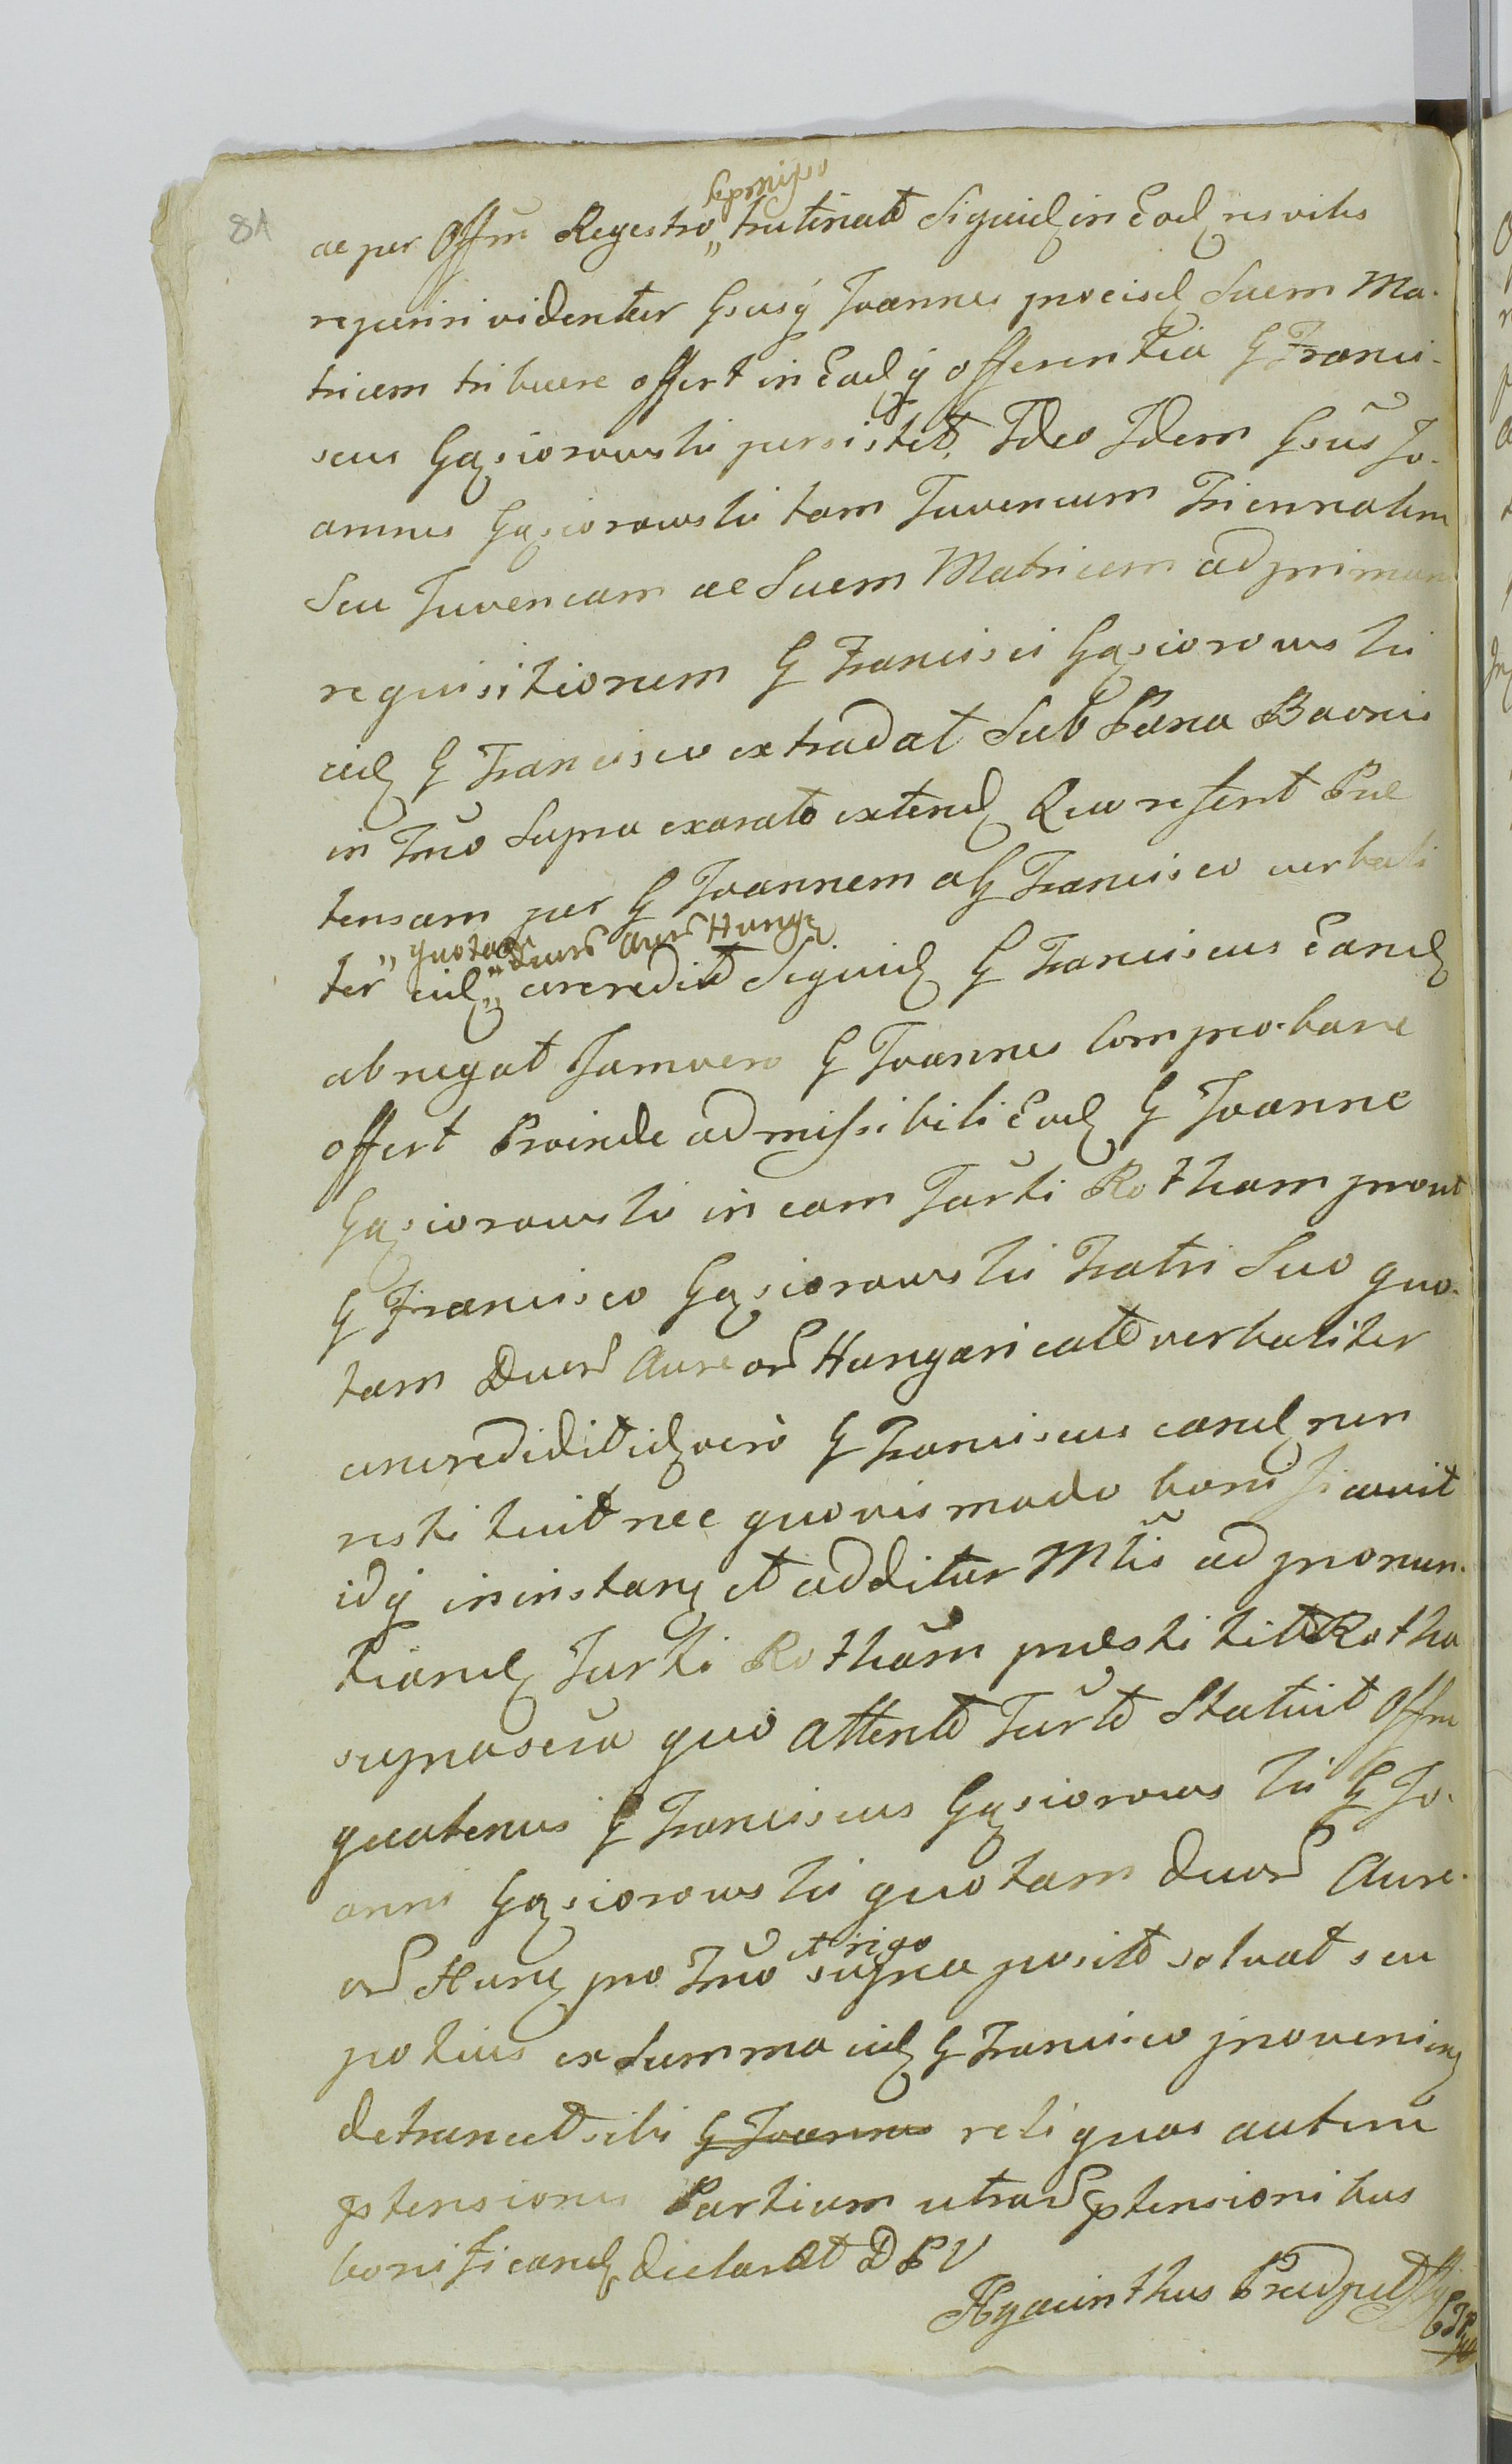 81
sepmisso
ac per Offm̄ Regestro „ trutinato Siquid in Eod res viles
requiri videntur Gsusq Joannes praecisd Suem Ma-
tricem tribuere offert in Eadq offerentia G Franci-
scus Gąsiorowski persistit, Ideo Idem Gsūs Jo-
annes Gąsiorowski tam Juvencum Triennalem
Seu Juvencam ac Suem Matricem ad primam
requisitionem G Francisci Gąsiorowski
eid G Francisco extradat Sub Pæna Baonis
in Tr̄no Supra exarato extend Quo refert Præ
tensam per G Joannem a G Francisco verbali
„ quotam „ duor Aur Hung
ter eid „ concredit Siquid G Franciscus Eand
abnegat Jamvero G Joannes Comprobare
offert Proinde admissibili Eod G Joanne
Gąsiorowski in eam Jur̄ti Rotham prout
G Francisco Gąsiorowski Fratri Suo quo-
tam Duor Aureor Hungaricalm verbaliter
concredidit idvero G Franciscus eand non
restituit nec quovis modo bonificavit
idq in instan et additur Mtis̄ ad pronun-
tiand Jurti Rotham̄ præstitit Rotha
suprascra quo attento Jur̄to Statuit Offm
quatenus G Franciscus Gąsiorowski G Jo-
anni Gąsiorowski quotam duor Aure-
et rigo
or Hung pro Tr̄no supra posito solvat seu
potius ex Summa eid G Francisco provenien
detruncet sibi G Joannes reliquas autem̄
ptensiones Partium utrar ptensionibus
bonificand declarat D P V
Hyacinthus Przedpełski